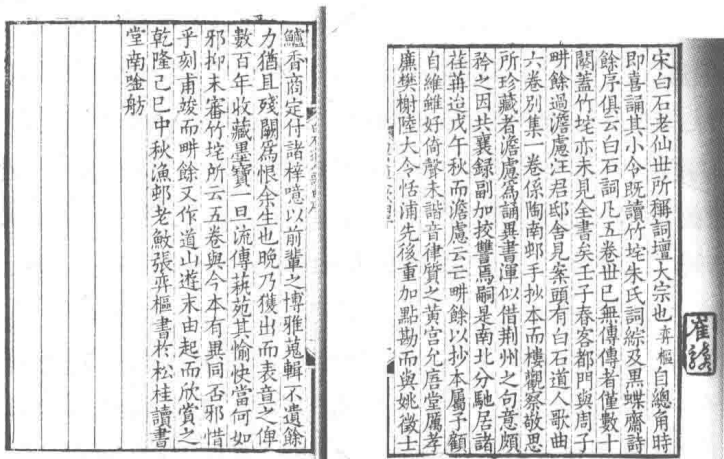 宋白石老仙世所稱詞壇大宗也弈樞自總角時
即喜誦其小令既讀竹垞朱氏詞綜及黑蝶齋詩
餘序俱云白石詞凡五卷世已無傳傳者僅數十
闋蓋竹垞亦未見全書矣壬子春客都門與周子
畊餘過澹慮汪君邸舍見案頭有白石道人歌曲
六卷別集一卷係陶南邨手抄本而樓觀察敬思
所珍藏者澹慮為誦異書渾似借荆州之句意頗
矜之因共襄録副加挍讐焉嗣是南北分馳居諸
荏苒迨戊午秋而澹慮云亡畊餘以抄本屬予顧
自維雖好倚聲未諧音律質之黄宫允唐堂厲孝
廉樊榭陸大令恬浦先後重加點勘而與姚徵士
鱸香商定付諸梓噫以前輩之博雅蒐輯不遺餘
力猶且殘闕為恨余生也晚乃獲出而表章之俾
數百年收藏墨寶一旦流傳萟苑其愉快當何如
邪抑未審竹垞所云五卷與今本有異同否邪惜
乎刻甫竣而畊餘又作道山遊末由起而欣賞之
乾隆己巳中秋漁邨老鮫張弈樞書於松桂讀書
堂南𡸁舫